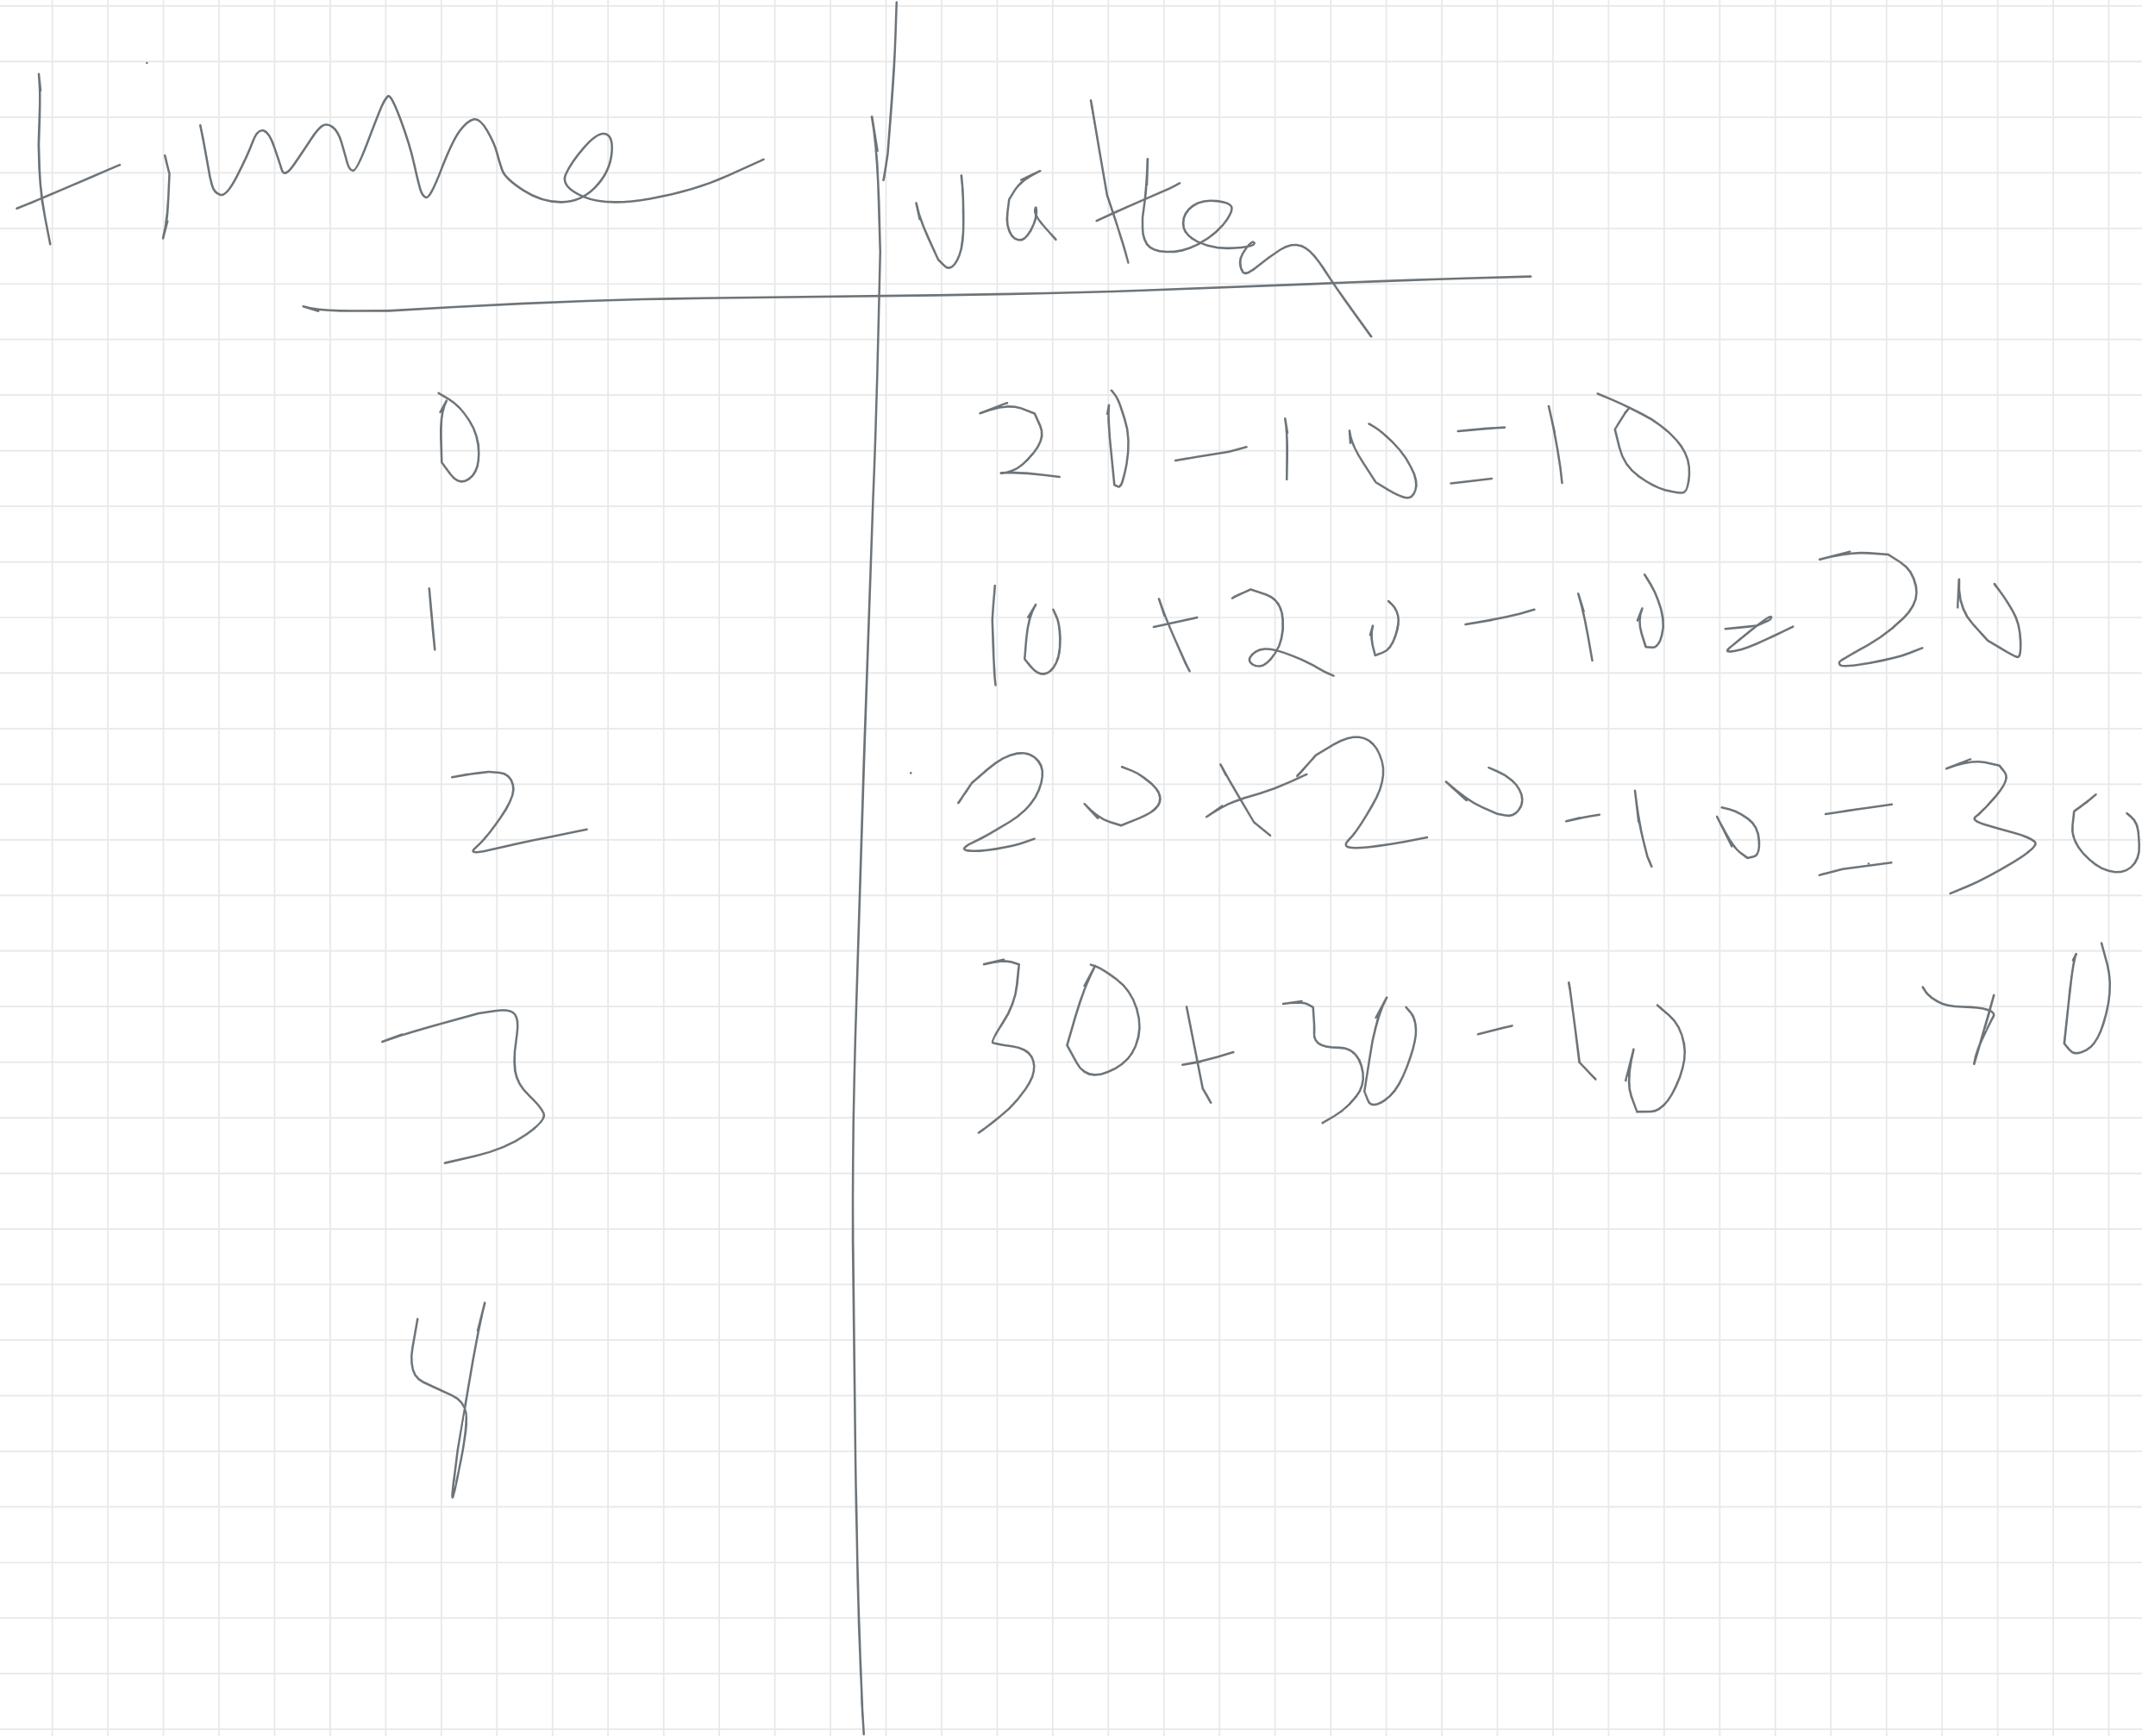 Time Water
0 20-10=10
1 10+20-10=20
2 20+20-10=30
3 30+30-10 40
4